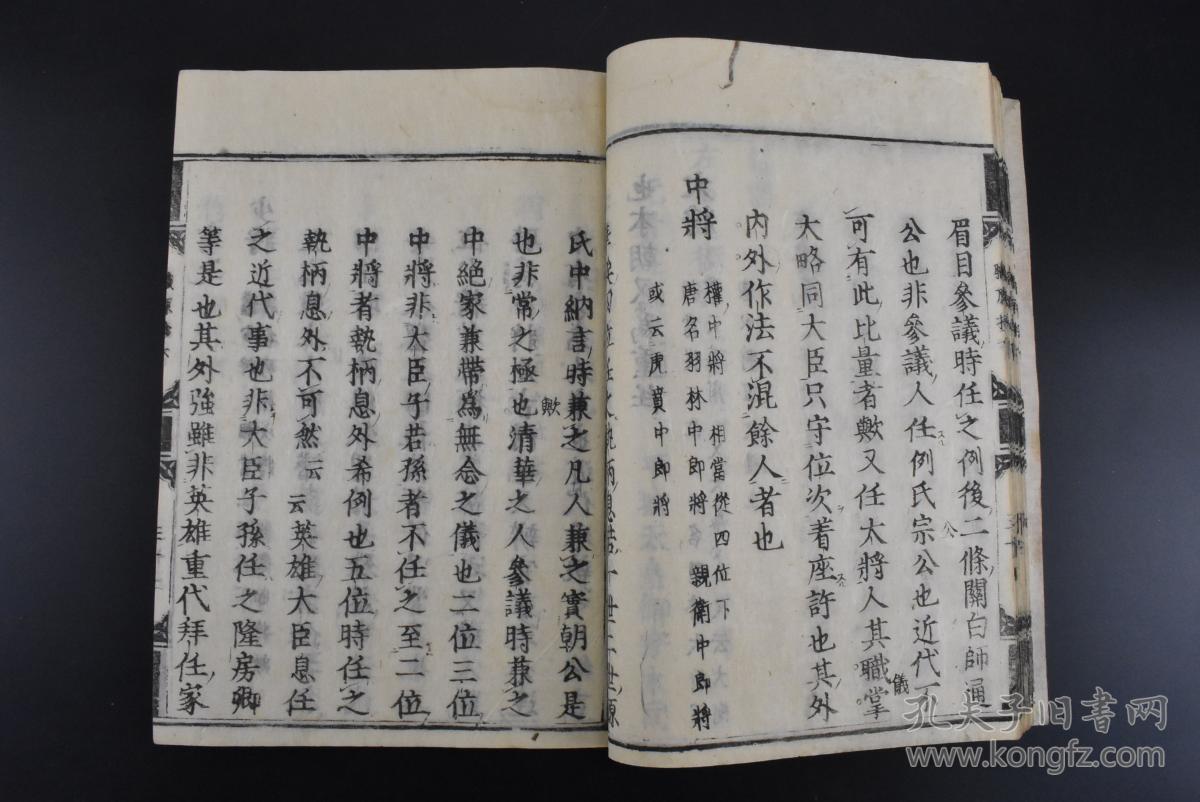 眉目參議時任之例後二條關白師通
公也非參議人任例氏宗公也近代不
可有此比量者歟又任大將人其職掌
儀
大略同大臣只守位次着座許也其外
内外作法不混餘人者也
中將
權中將 相當從四位下
唐名羽林中郎將 親衛中郎將
或云虎賁中郎將
氏中納言時兼之凡人兼之實朝公是
也非常之極也清華之人參議時兼之
歟
中絕家兼帶爲無念之儀也二位三位
中將非大臣子若孫者不任之至二位
中將者執柄息外希例也五位時任之
執柄息外不可然云云英雄大臣息任
之近代事也非大臣子孫任之隆房卿
等是也其外強雖非英雄重代拜任家
孔夫子旧书网
www.kongfz.com